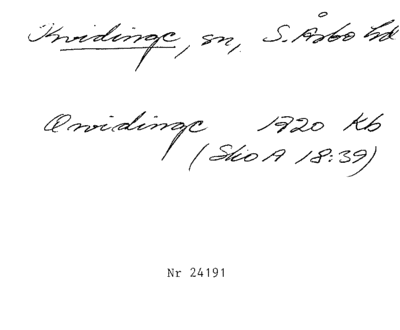 Kvidinge, sn, S. Åsbo hd
Qvidinge 1720 Kb
(Skio A 18:39)
Nr 24191